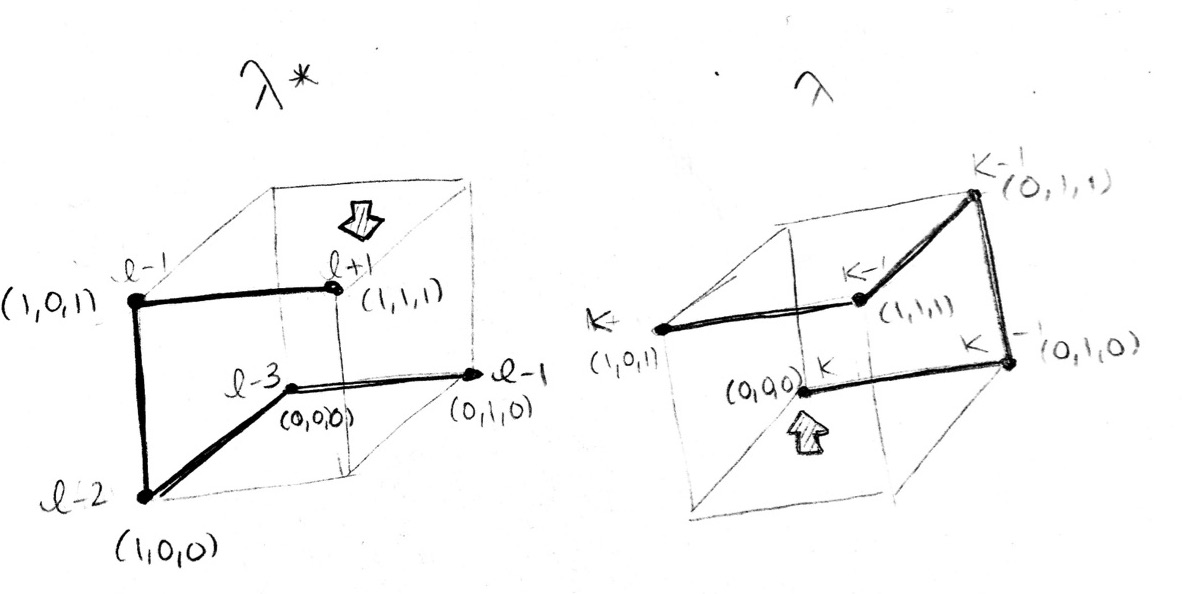 λ*
l-1
(1,0,1)
l+1
(1,1,1)
l-3
(0,0,0)
l-1
(0,1,0)
l-2
(1,0,0)
λ
K-1
(0,1,1)
K-1
(1,1,1)
K
(1,0,1)
K
(0,0,0)
K-1
(0,1,0)